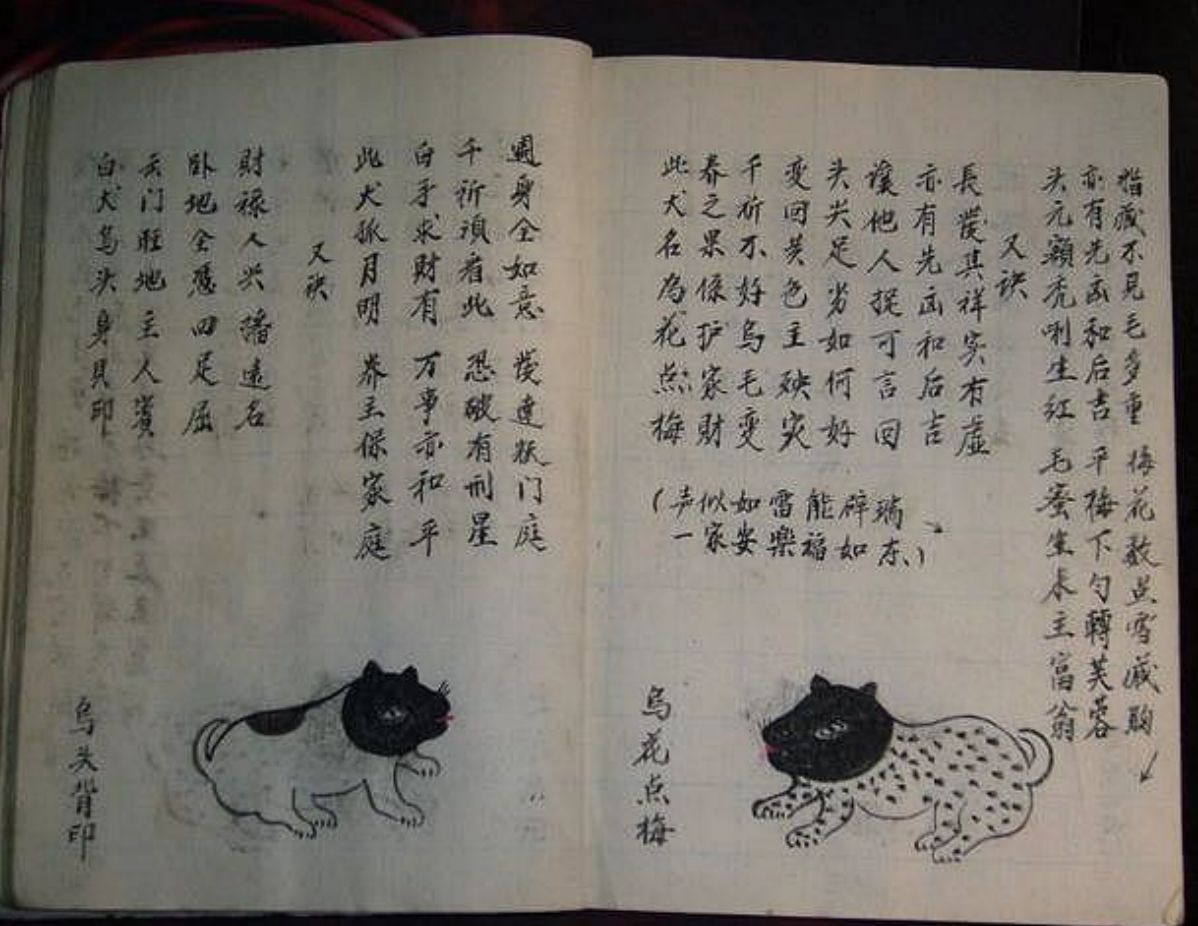 白犬烏头身具印
丢门旺地主人賓
卧地全憑四足屈
財禄人兴播遠名
又诀
此犬孤月明 养主保家庭
白手求財有 万事亦和平
千祈須看此 恐破有刑星
週身全如意 發達旺门庭
烏头背印
此犬名為花点梅
养之果係护家財
千祈不好烏毛变
变回英色主殃灾
头尖足劣如何好
讓他人捉可言回
亦有先凶和后吉
長發其祥实有虛
(声似如雷能辟瑞
一家安樂福如东)
又诀
头元额壳唎生红 毛蜜生来主富翁
亦有先凶和后吉 平梅下勺轉芙蓉
指藏不見毛多重 梅花数点雪藏胸
烏花点梅